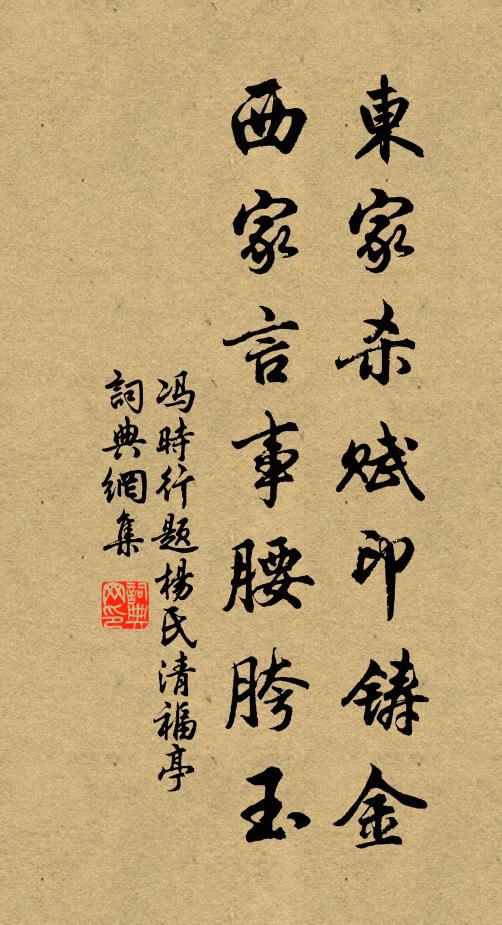 東家杀賊印铸金
西家言事腰胯玉
冯時行题楊氏清福亭
詞典網集
詞典网印